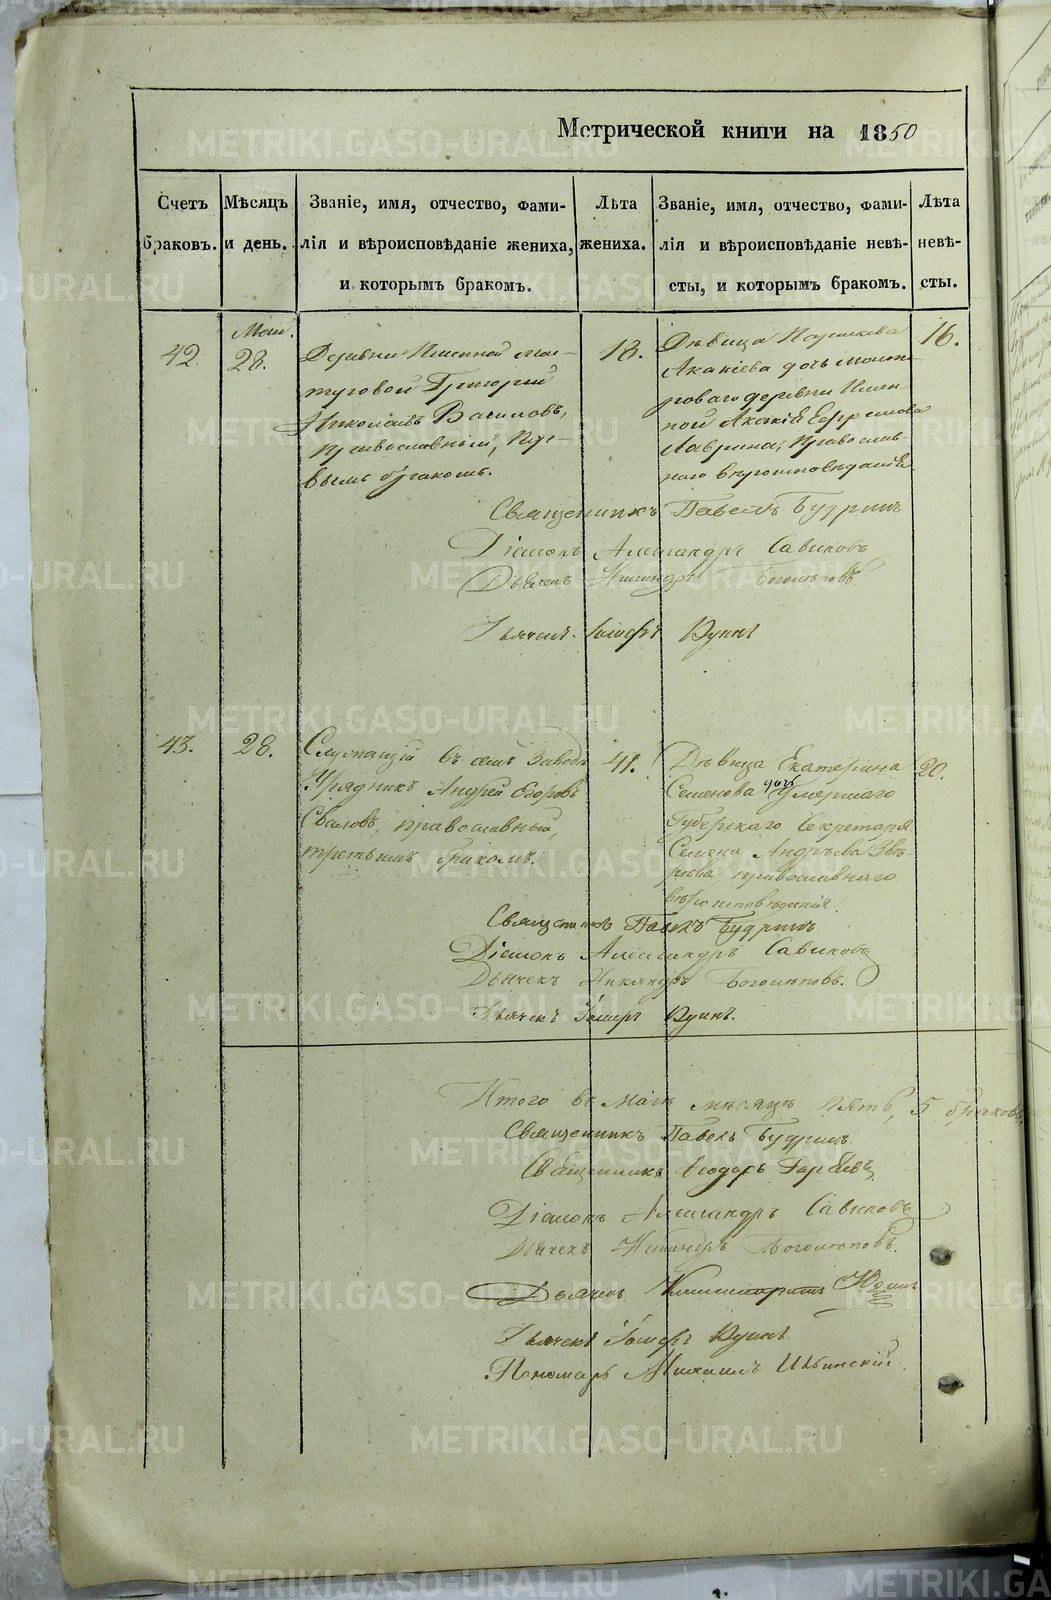 Метрической книги на 1850
Счетъ браковъ.
Мѣсяцъ и день.
Званіе, имя, отчество, фами-
лія и вѣроисповѣданіе жениха,
и которымъ бракомъ.
Лѣта
жениха.
Званіе, имя, отчество, фами-
лія и вѣроисповѣданіе невѣ-
сты, и которымъ бракомъ.
Лѣта
невѣ-
сты.
42.
28.
Деревни
Григорій
Василовъ,
православный, пер-
вымъ бракомъ.
18.
Дѣвица
Акакіева дочь мастр
роваго деревни
Акакія Ефремова
Лаврина, православ-
наго вѣроисповѣданія
16.
Священникъ Павелъ Будринъ
Діаконъ Александръ Савиновъ
Дьячекъ Никандръ Боголюбовъ
Дьячекъ
43.
28.
Служащій въ семъ заводѣ
Урядникъ Андрей Егоровъ
православный,
третьимъ бракомъ.
41.
Дѣвица Екатерина
Семенова дочь умершаго
Губерскаго Секретаря
Семена Андрѣева Звѣ
рева, православнаго
вѣроисповѣданія.
20.
Священникъ Павелъ Будринъ
Діаконъ Александръ Савиновъ
Дьячекъ Никандръ Боголюбовъ.
Дьячекъ
Итого въ маіѣ мѣсяцѣ пять, 5 браковъ.
Священникъ Павелъ Будринъ
Священникъ
Діаконъ Александръ Савиновъ
Дьячекъ Никандръ Боголюбовъ.
Дьячекъ
Дьячекъ
Пономарь Михаилъ Ильинскій.
METRIKI.GASO-URAL.RU